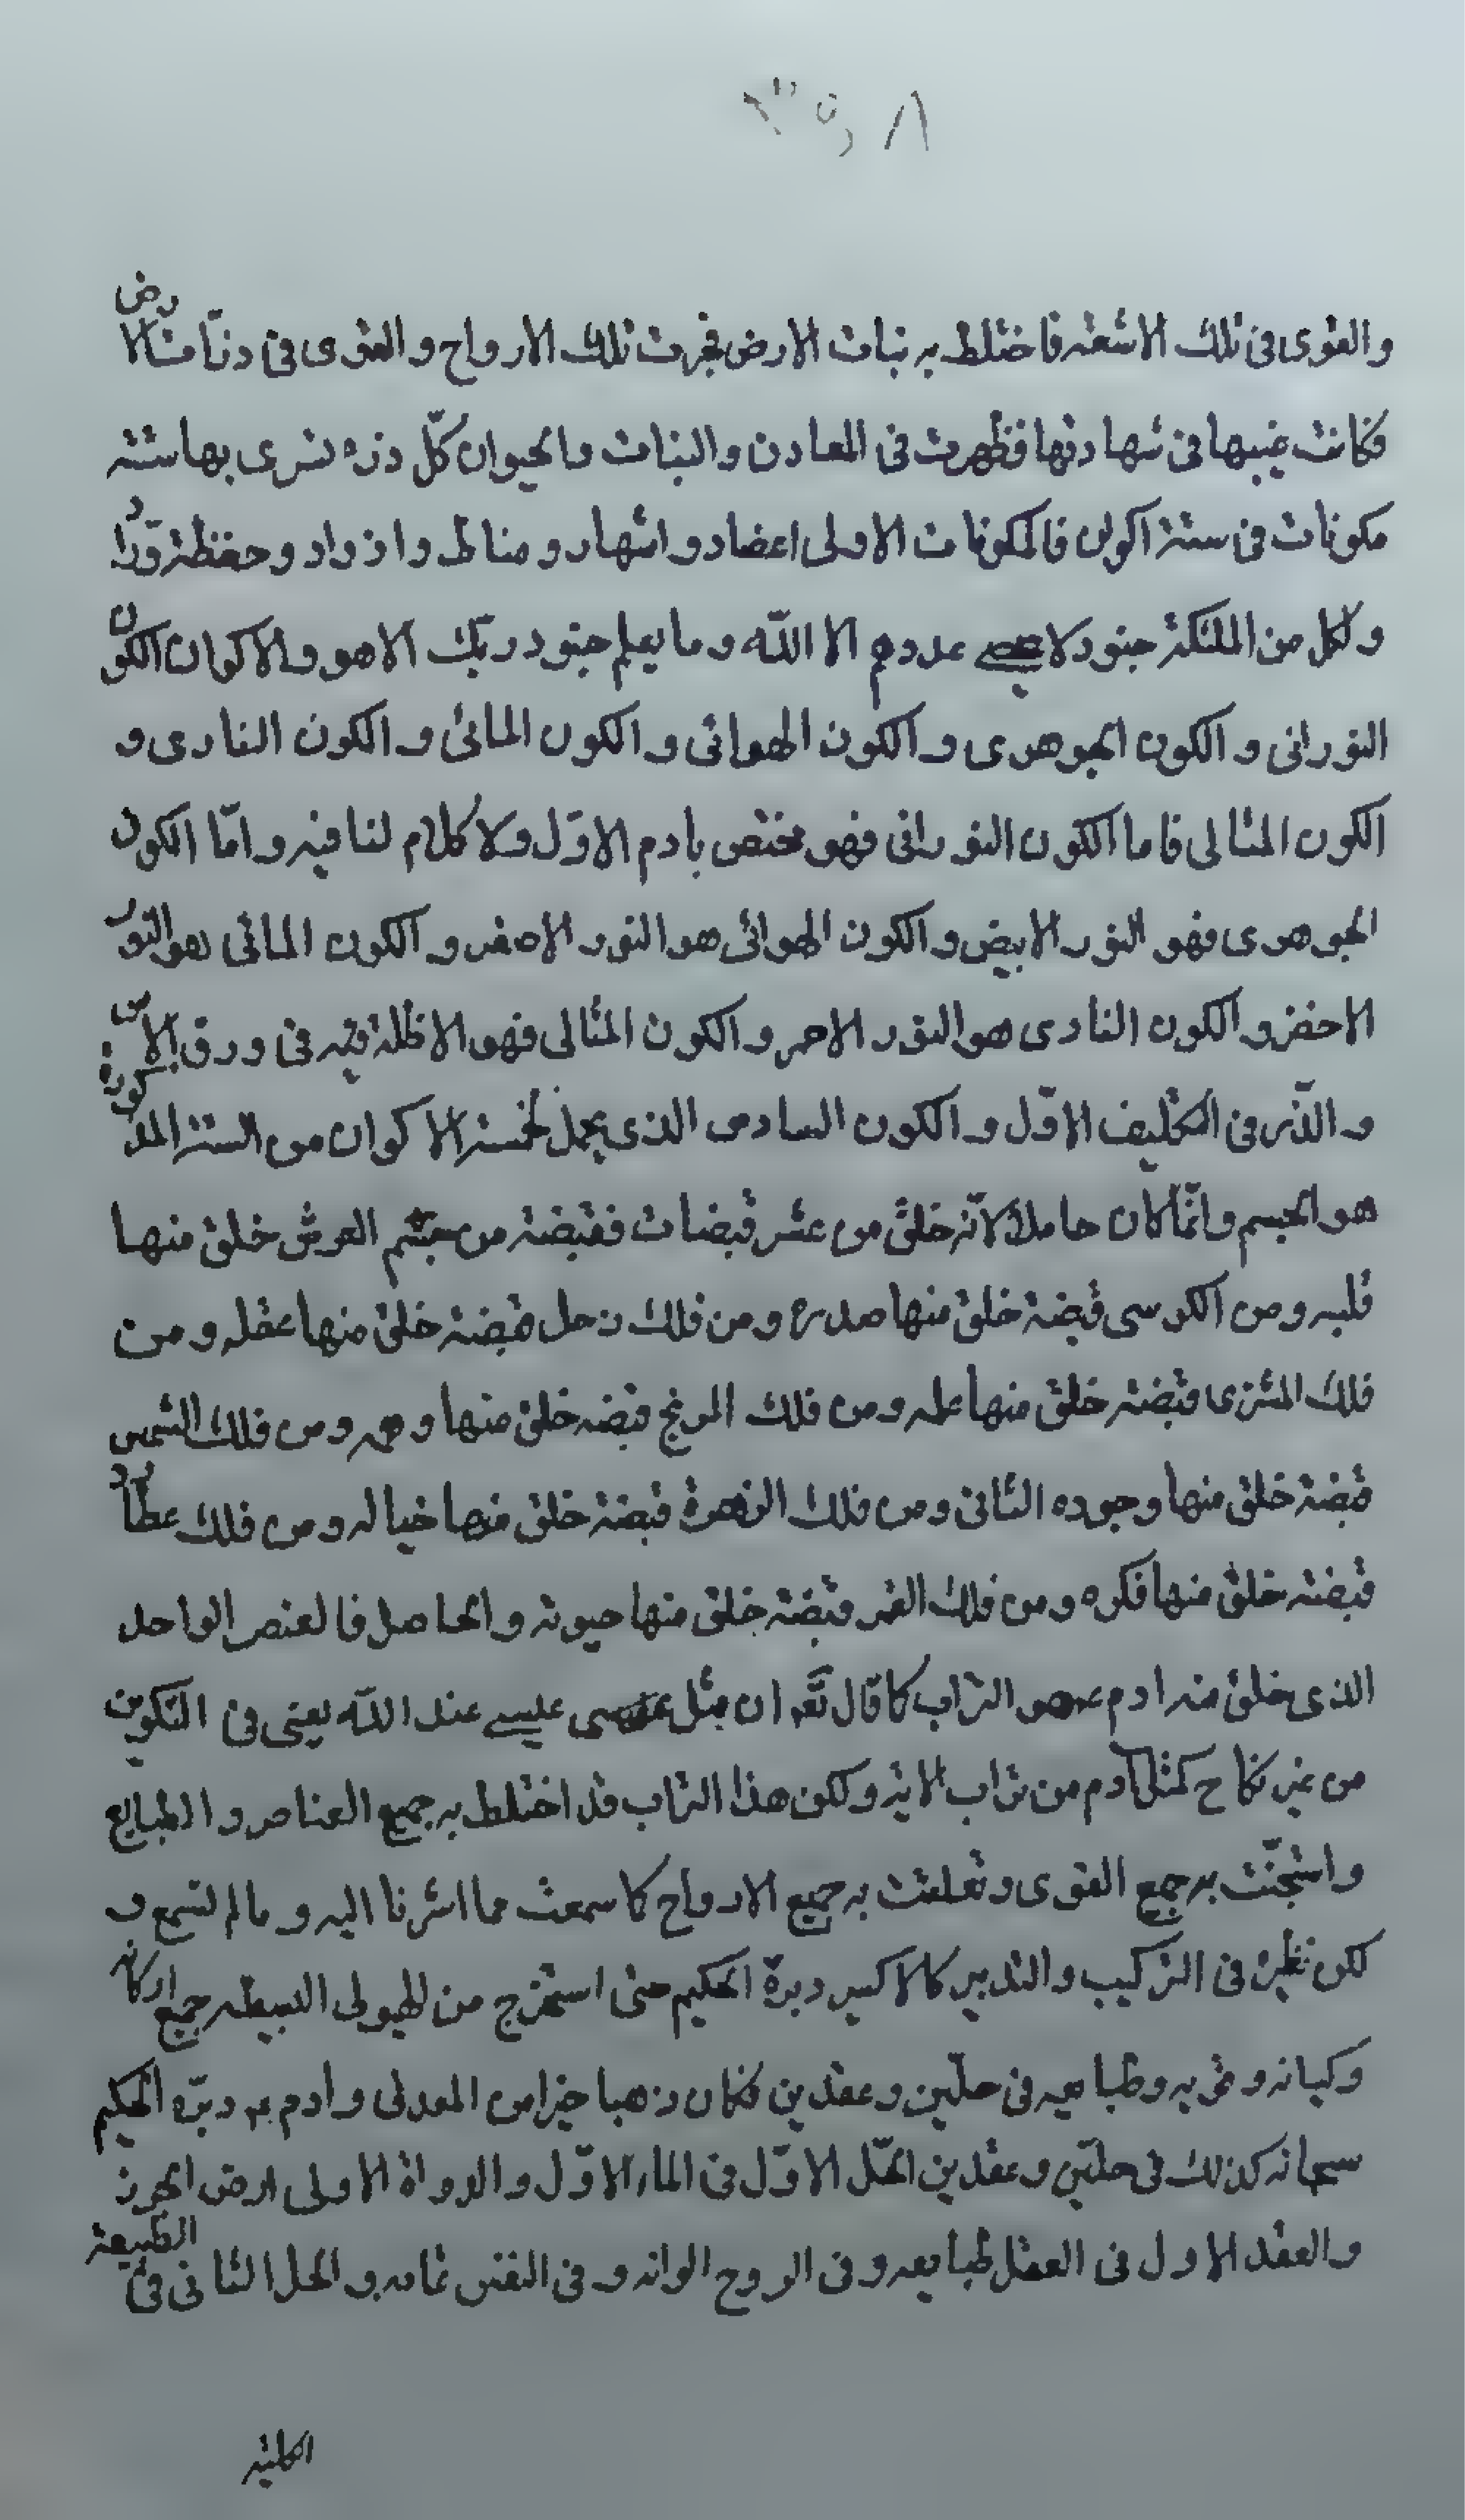 والقوى فى تلك الاشعة فاختلط به نبات الارض فجرت تلك الارواح والقوى فى ذرّات الارض
فكانت غيبها فى شهادتها فظهرت فى المعادن والنبات والحيوان كلّ ذره ترى بها ستة
مكونات فى ستة اكوان فالمكونات الاولى اعضاد واشهاد ومناة واذواد وحفظة وروّاد
ولكل من الملئكة جنود لا يحصى عددهم الا الله وما يعلم جنود ربّك الا هو والاكوان الكون
النورانى والكون الجوهرى والكون الهوائى والكون المائى والكون النارى و
الكون المثالى فاما الكون النورانى فهو مختص بادم الاوّل ولا كلام لنا فيه وامّا الكون
الجوهرى فهو النور الابيض والكون الهوائى هو النور الاصفر والكون المائى هو النور
الاخضر والكون النارى هو النور الاحمر والكون المثالى فهو الاظلة فيه فى ورق الاس
والذّر فى التكليف الاوّل والكون السادس الذى يحمل لخمسة الاكوان من الستة المذكورة
هو الجسم وانّما كان حاملا لانّه خلق من عشر قبضات فقبضة من محبّم العرش خلق منها
قلبه ومن الكرسى قبضة خلق منها صدره ومن فلك زحل قبضة خلق منها عقله ومن
فلك المشترى قبضة خلق منها علمه ومن فلك المريخ قبضه خلق منها وهمه ومن فلك الشمس
قبضة خلق منها وجوده الثانى ومن فلك الزهرة قبضة خلق منها خياله ومن فلك عطارد
قبضة خلق منها فكره ومن فلك القمر قبضة خلق منها حيوته والحاصل فالعنصر الواحد
الذى خلق منه ادم ع هو التراب كما قال تعم ان مثل عيسى عند الله يعنى فى التكوين
من غير نكاح كمثل آدم من تراب الاية ولكن هذا التراب قد اختلط به جميع العناصر والطبايع
واستجنّت به جميع القوى وتعلقت به جميع الارواح كما سمعت مما اشرنا اليه وما لم تسمع و
لكن نظيره فى التركيب والتدبير كالاكسير دبره الحكيم حتى استخرج من الهيولى البسيطه جميع اركانه
وكيانه و وطبايعه فى حلّين وعقدين فكان ذهبا خيرا من المعدنى وادم ع دبّره الحكيم
سبحانه كذلك فى حلّين وعقدين الحّل الاوّل فى الماء الاوّل والدواة الاولى ارض الجرز
والعقد الاول فى العقل طبايعه وفى الروح الوانه وفى النفس تمامه والحل الثانى فى الطبيعة
الكلية